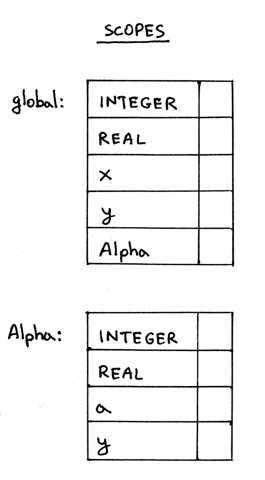 SCOPES
global:
INTEGER
REAL
x
y
Alpha
Alpha:
INTEGER
REAL
a
y